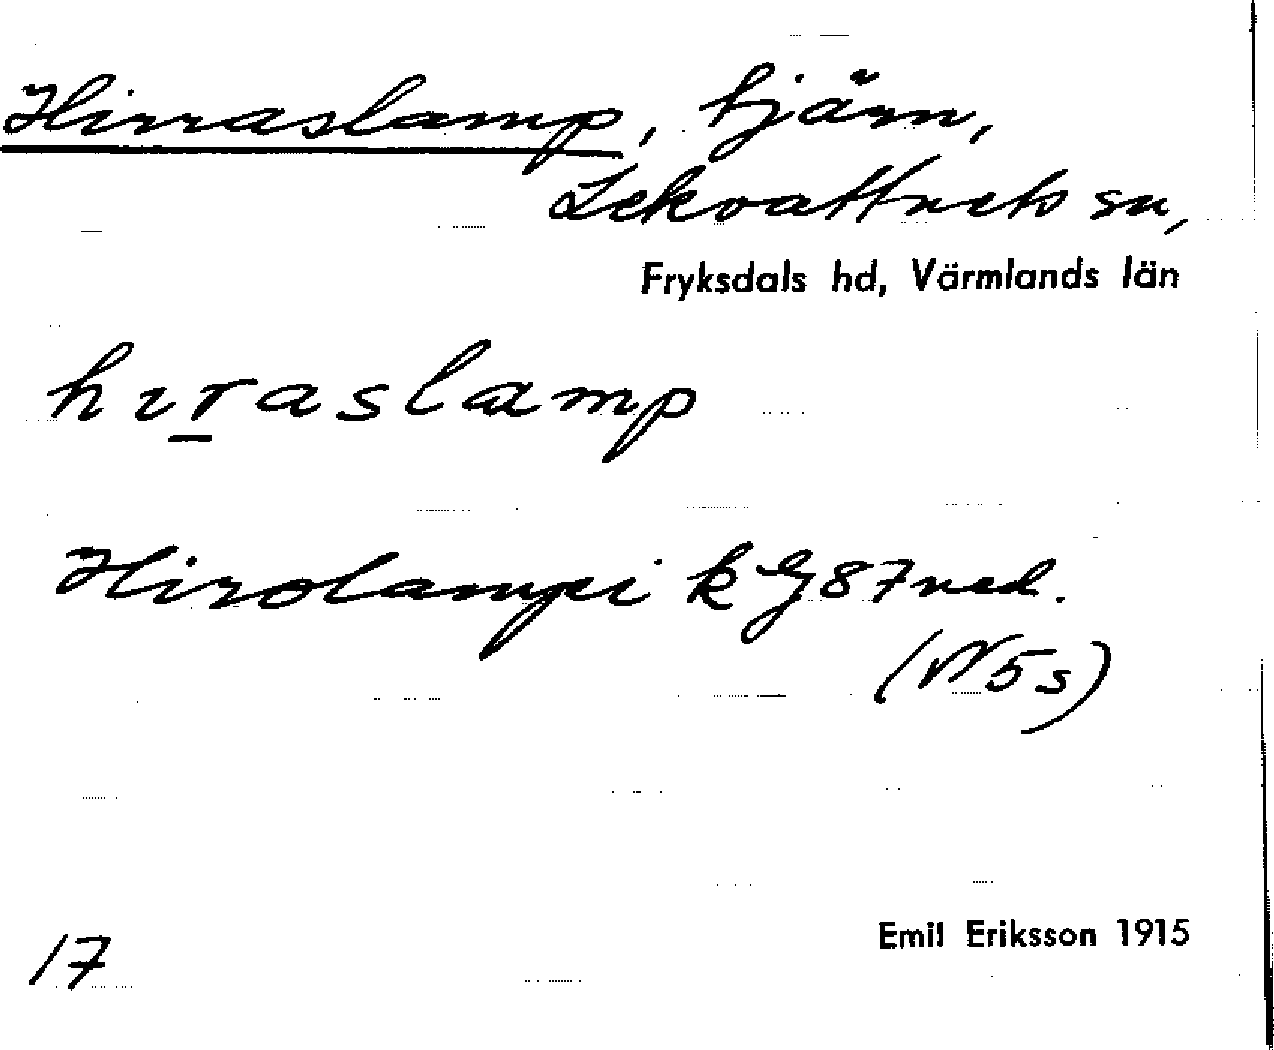 Hirraslamp, tjärn,
Lekvattnets sn,
Fryksdals hd, Värmlands län
hıṟaslamp
Hirolampi k G87ned.
(N5s)
Emil Eriksson 1915
17